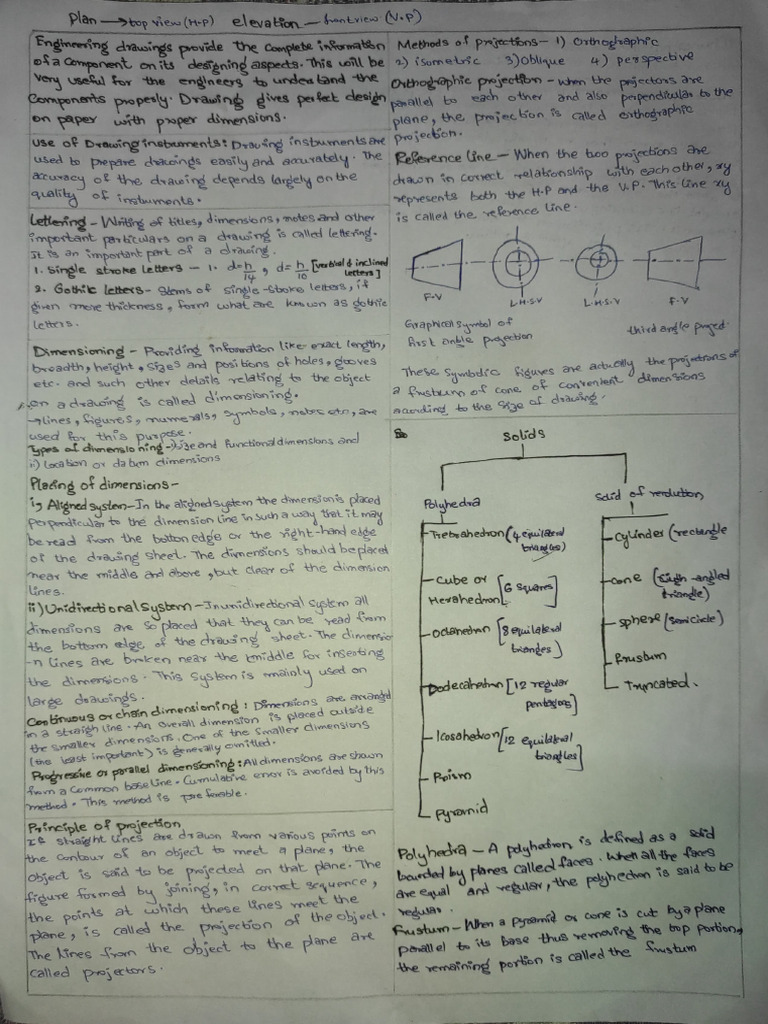 Plan → top view (H.P) elevation - front view (V.P)
Engineering drawings provide the complete information
of a component on its designing aspects. This will be
very useful for the engineers to understand the
components properly. Drawing gives perfect design
on paper with proper dimensions.
Use of Drawing instruments: Drawing instruments are
used to prepare drawings easily and accurately. The
accuracy of the drawing depends largely on the
quality of instruments.
Lettering - Writing of titles, dimensions, notes and other
important particulars on a drawing is called lettering.
It is an important part of a drawing.
1. Single stroke letters - 1. d=h/14, d=h/10 [vertical & inclined
letters]
2. Gothic letters - Stems of single-stroke letters, if
given more thickness, form what are known as gothic
letters.
Dimensioning - Providing information like exact length,
breadth, height, sizes and positions of holes, grooves
etc. and such other details relating to the object
on a drawing is called dimensioning.
→ lines, figures, numerals, symbols, notes etc, are
used for this purpose.
Types of dimensioning - i) size and functional dimensions and
ii) location or datum dimensions
Placing of dimensions -
i) Aligned system - In the aligned system the dimension is placed
perpendicular to the dimension line in such a way that it may
be read from the bottom edge or the right-hand edge
of the drawing sheet. The dimensions should be placed
near the middle and above, but clear of the dimension
lines.
ii) Unidirectional system - In unidirectional system all
dimensions are so placed that they can be read from
the bottom edge of the drawing sheet. The dimensio
-n lines are broken near the middle for inserting
the dimensions. This system is mainly used on
large drawings.
Continuous or chain dimensioning: Dimensions are arranged
in a straigh line. An overall dimension is placed outside
the smaller dimensions. One of the smaller dimensions
(the least important) is generally omitted.
Progressive or parallel dimensioning: All dimensions are shown
from a common base line. Cumulative error is avoided by this
method. This method is preferable.
Principle of projection
If straight lines are drawn from various points on
the contour of an object to meet a plane, the
object is said to be projected on that plane. The
figure formed by joining, in correct sequence,
the points at which these lines meet the
plane, is called the projection of the object.
The lines from the object to the plane are
called projectors.
Methods of projections - 1) Orthographic
2) isometric 3) Oblique 4) perspective
Orthographic projection - when the projectors are
parallel to each other and also perpendicular to the
plane, the projection is called orthographic
projection.
Reference line - When the two projections are
drawn in correct relationship with each other, xy
represents both the H.P and the V.P. This line xy
is called the reference line.
F.V L.H.S.V L.H.S.V F.V
Graphical symbol of
first angle projection
third angle
These symbolic figures are actually the projections of
a frustum of cone of convenient dimensions
according to the size of drawing.
Solids
Polyhedra
Solid of revolution
Tretrahedron (4 equilateral
triangles)
Cube or
Hexahedron [6 squares]
Octahedron [8 equilateral
triangles]
Dodecahedron [12 regular
pentagons]
Icosahedron [12 equilateral
triangles]
Prism
Pyramid
Cylinder (rectangle
cone (right-angled
triangle)
sphere (semicircle)
Frustum
Truncated.
Polyhedra - A polyhedron is defined as a solid
bounded by planes called faces. When all the faces
are equal and regular, the polyhedron is said to be
regular.
Frustum - When a pyramid or cone is cut by a plane
parallel to its base thus removing the top portion,
the remaining portion is called the frustum